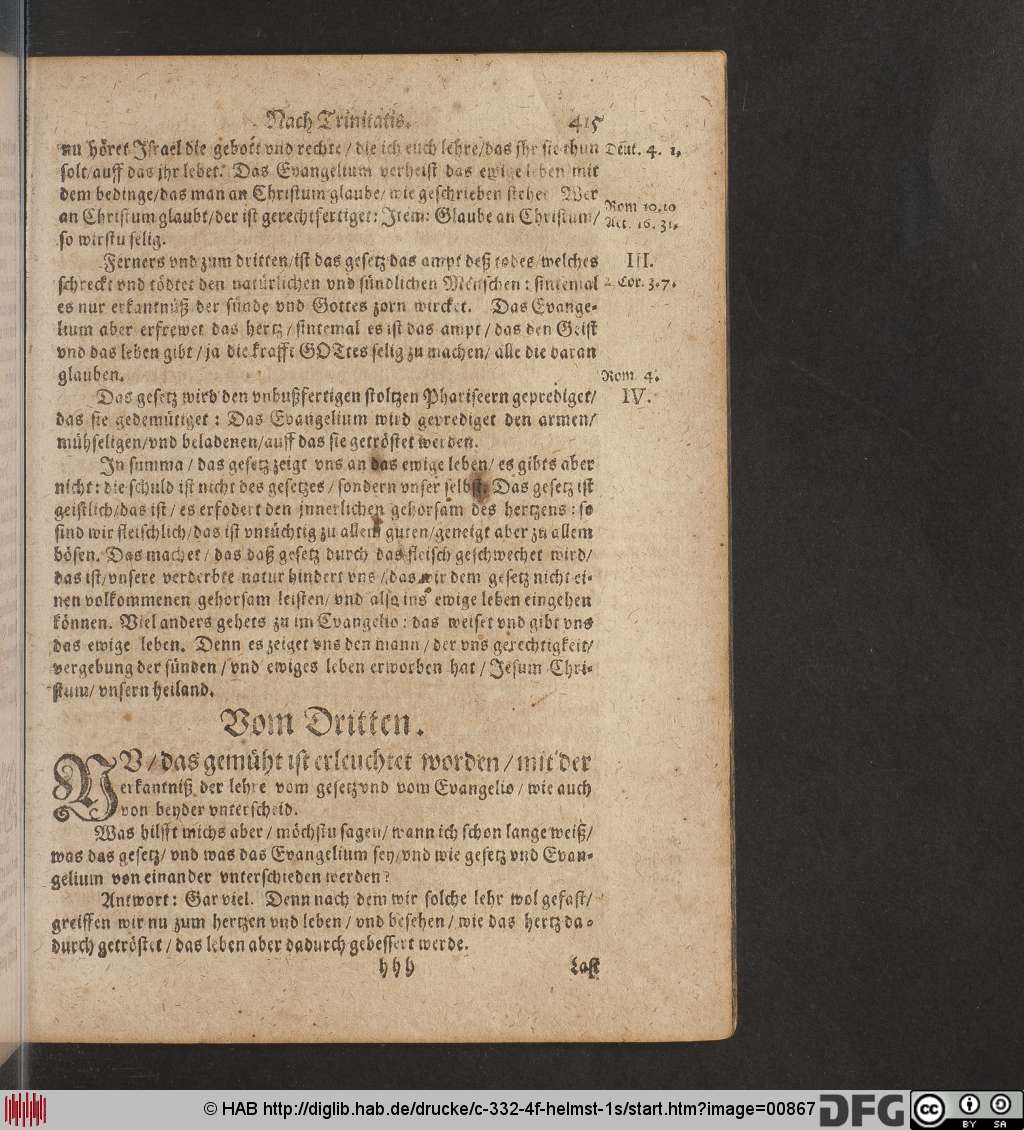 Nach Trinitatis. 415
nu höret Israel die gebott vnd rechte / die ich euch lehre/das jhr sie thun Deut. 4. 1.
solt/auff das jhr lebet. Das Evangelium verheist das ewige leben mit
dem bedinge/das man an Christum glaube/ wie geschrieben stehet Wer
an Christum glaubt/der ist gerechtfertiget: Item: Glaube an Christum/ Rom 10.10
Act. 16. 31.
so wirstu selig.
Ferners vnd zum dritten/ist das gesetz das ampt deß todes/welches III.
schreckt vnd tödtet den natürlichen vnd sündlichen Menschen: sintemal 2. Cor. 3.7.
es nur erkantnüß der sünde vnd Gottes zorn wircket. Das Evange-
lium aber erfrewet das hertz / sintemal es ist das ampt / das den Geist
vnd das leben gibt / ja die krafft GOTtes selig zu machen/ alle die daran
glauben. Rom. 4.
Das gesetz wird den vnbußfertigen stoltzen Phariseern geprediget/ IV.
das sie gedemütiget: Das Evangelium wird geprediget den armen/
mühseligen/vnd beladenen/auff das sie getröstet werden.
In summa / das gesetz zeigt vns an das ewige leben/ es gibts aber
nicht: die schuld ist nicht des gesetzes / sondern vnser selbst. Das gesetz ist
geistlich/das ist / es erfodert den jnnerlichen gehorsam des hertzens: so
sind wir fleischlich/das ist vntüchtig zu allem guten/geneigt aber zu allem
bösen. Das machet / das daß gesetz durch das fleisch geschwechet wird/
das ist/vnsere verderbte natur hindert vns / das wir dem gesetz nicht ei-
nen volkommenen gehorsam leisten/ vnd also ins ewige leben eingehen
können. Viel anders gehets zu im Evangelio: das weiset vnd gibt vns
das ewige leben. Denn es zeiget vns den mann / der vns gerechtigkeit/
vergebung der sünden / vnd ewiges leben erworben hat / Jesum Chri-
stum/ vnsern heiland.
Vom Dritten.
NV / das gemüht ist erleuchtet worden / mit der
erkantniß der lehre vom gesetz vnd vom Evangelio / wie auch
von beyder vnterscheid.
Was hilfft michs aber / möchstu sagen/ wann ich schon lange weiß/
was das gesetz/ vnd was das Evangelium sey/vnd wie gesetz vnd Evan-
gelium von einander vnterschieden werden?
Antwort: Gar viel. Denn nach dem wir solche lehr wol gefast/
greiffen wir nu zum hertzen vnd leben / vnd besehen / wie das hertz da-
durch getröstet / das leben aber dadurch gebessert werde.
hhh Last
© HAB http://diglib.hab.de/drucke/c-332-4f-helmst-1s/start.htm?image=00867 DFG cc BY SA